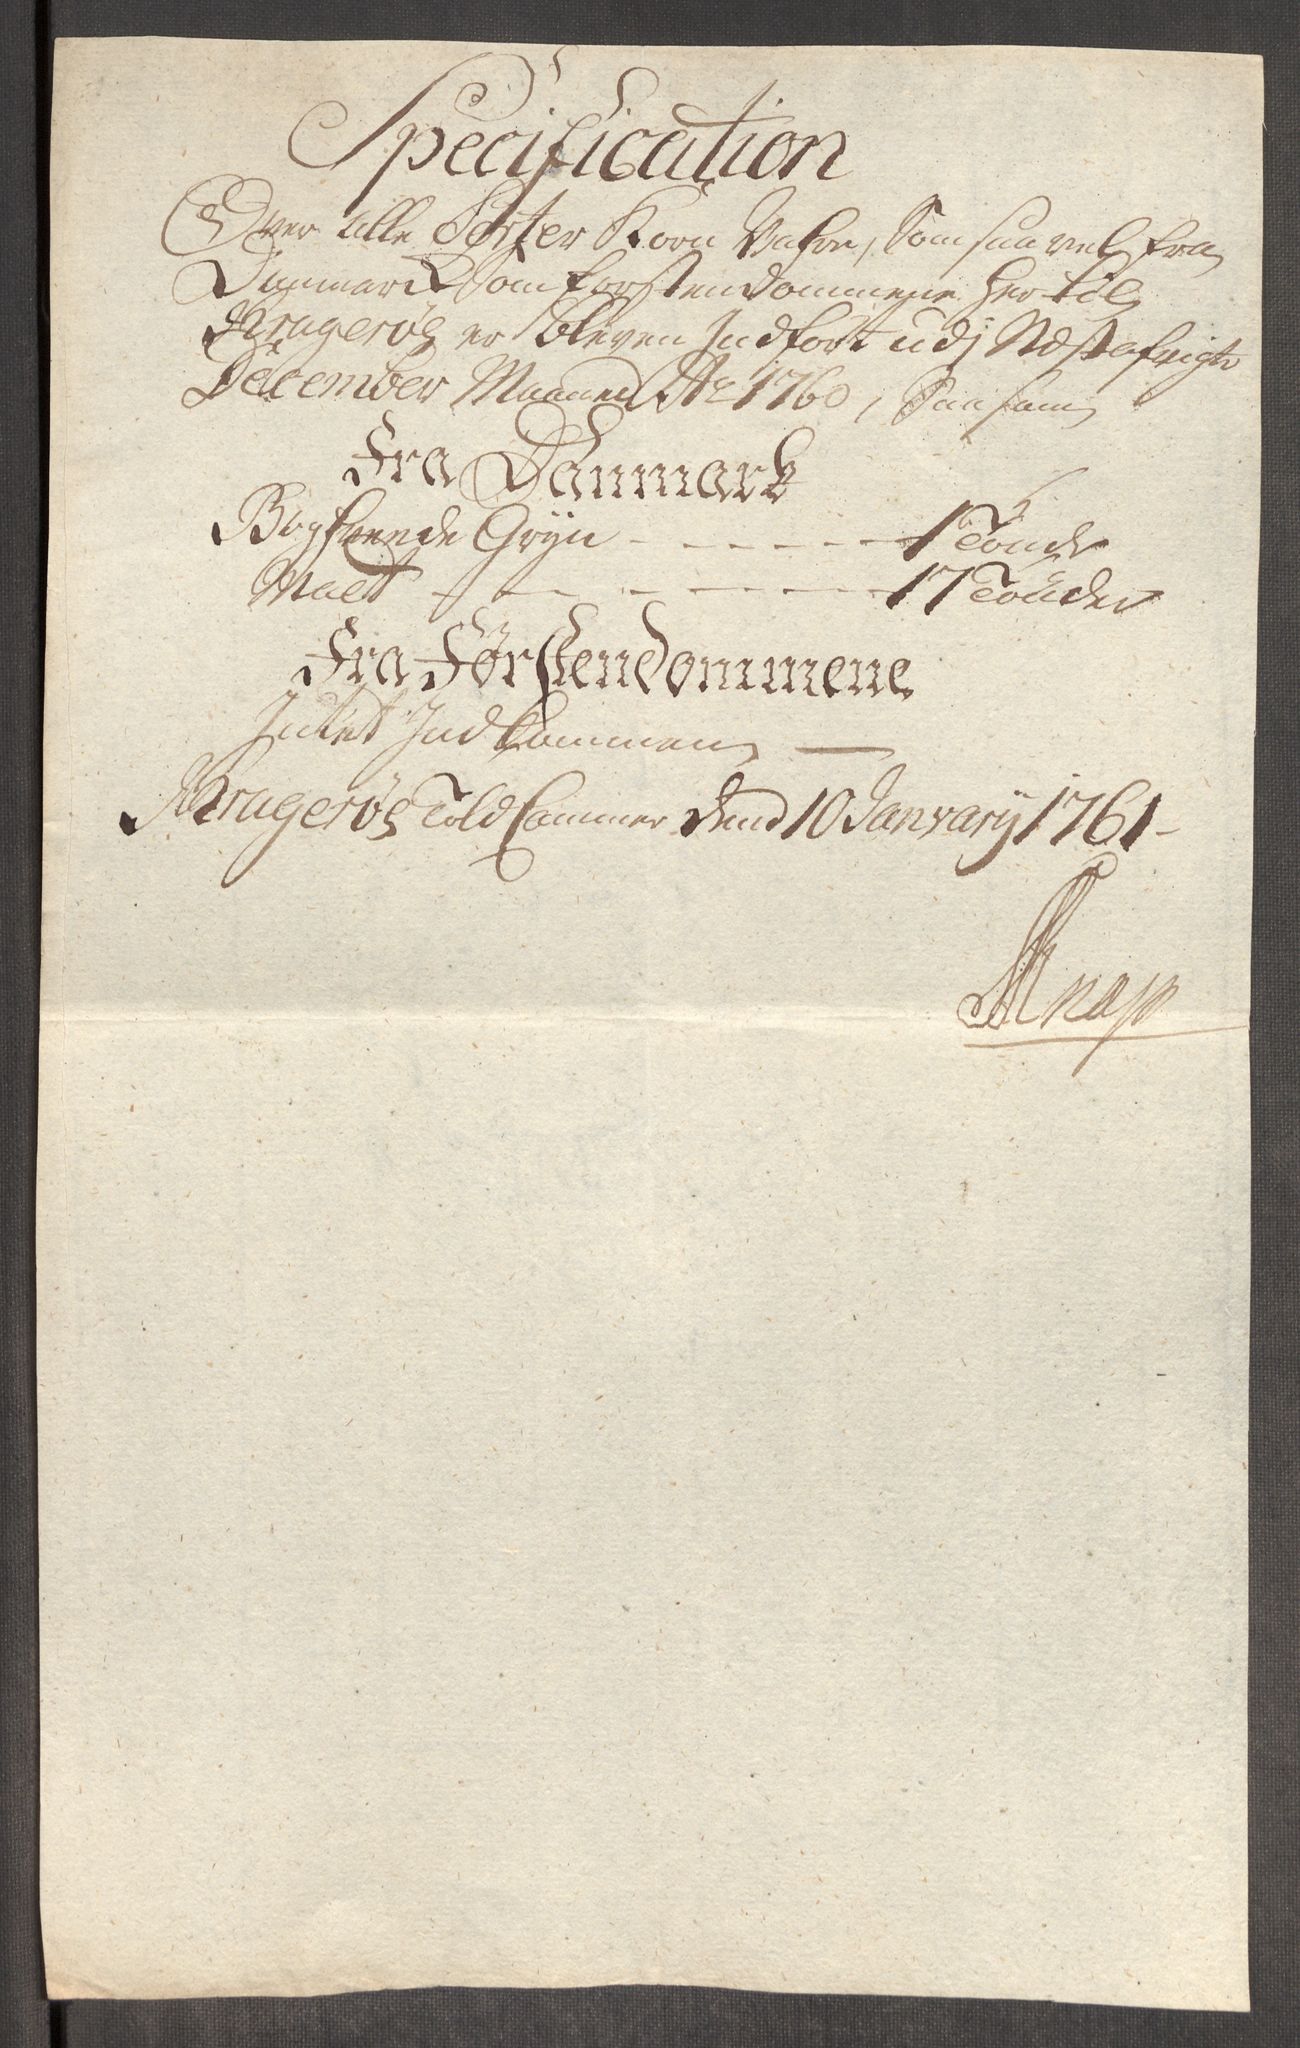 Specification
Over alle Sorter Korn Vahre, Som saavel fra
Danmarck som Førstendommene her til
Kragerøe er bleven Indført udj Næstafvigte
December Maaned Ao 1760, Saasom
Fra Danmark
Boghveede Gryn - - - - - - 1 Tønde
Malt - - - - - - - 17 Tønder
Fra Førstendommene
Intet Indkommen —
Kragerøe Told Cammer dend 10 January 1761 -
Knap